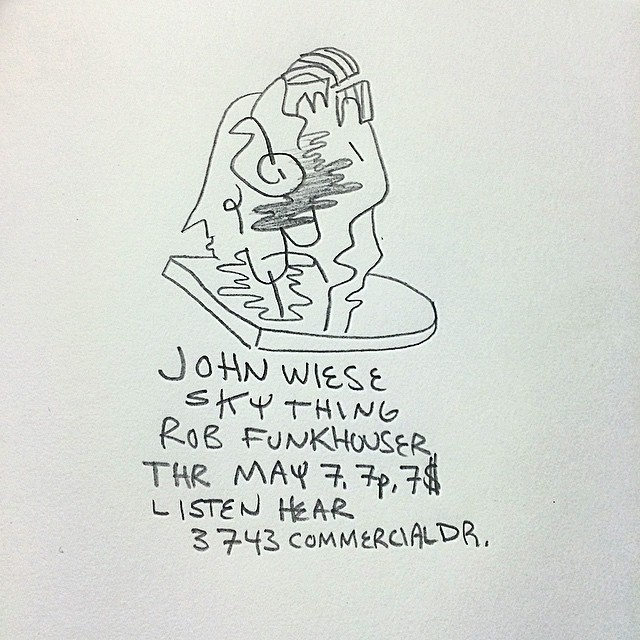 JOHN WIESE
SKY THING
ROB FUNKHOUSER
THR MAY 7, 7p, 7$
LISTEN HEAR
3743 COMMERCIAL DR.